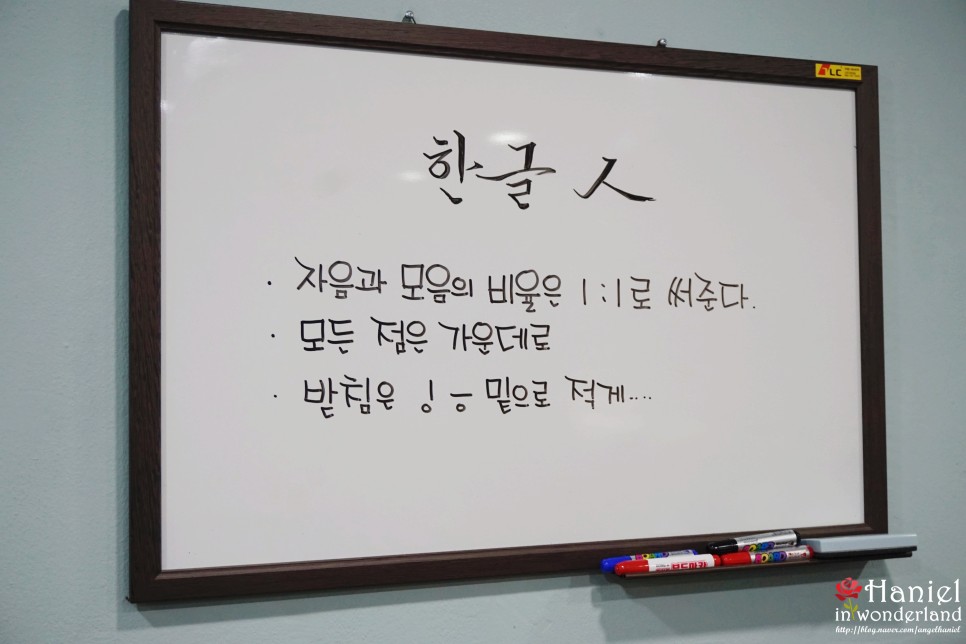 한글 人
· 자음과 모음의 비율은 1:1로 써준다.
· 모든 점은 가운데로
· 받침은 ㅣ ㅡ 밑으로 적게....
LC
보드마카
Haniel
in wonderland
http://blog.naver.com/angelhaniel